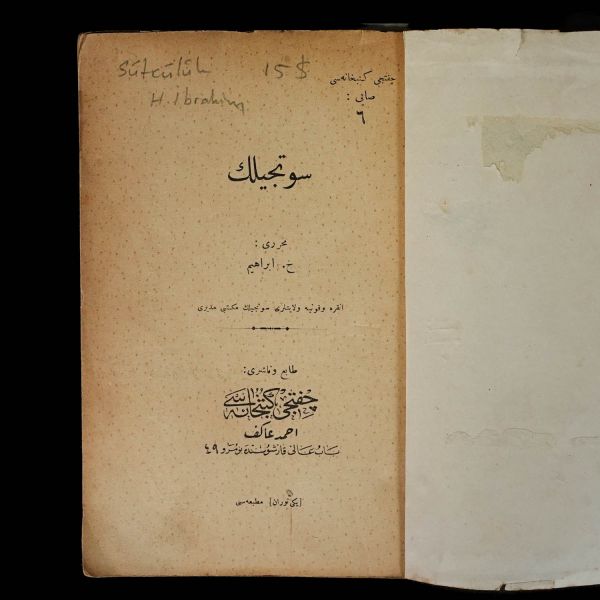 Sütcülük 15$
H. İbrahim
چفتجی کتبخانه‌سی
صایی :
٦
سوتجیلك
محرری :
خ. ابراهیم
انقره و قونیه ولایتلری سوتجیلك مکتبی مدیری
طابع و ناشری:
چفتجی کتبخانه‌سی
احمد عاکف
باب عالی قارشوسنده نومرو ٤٩
[یکی توران] مطبعه‌سی